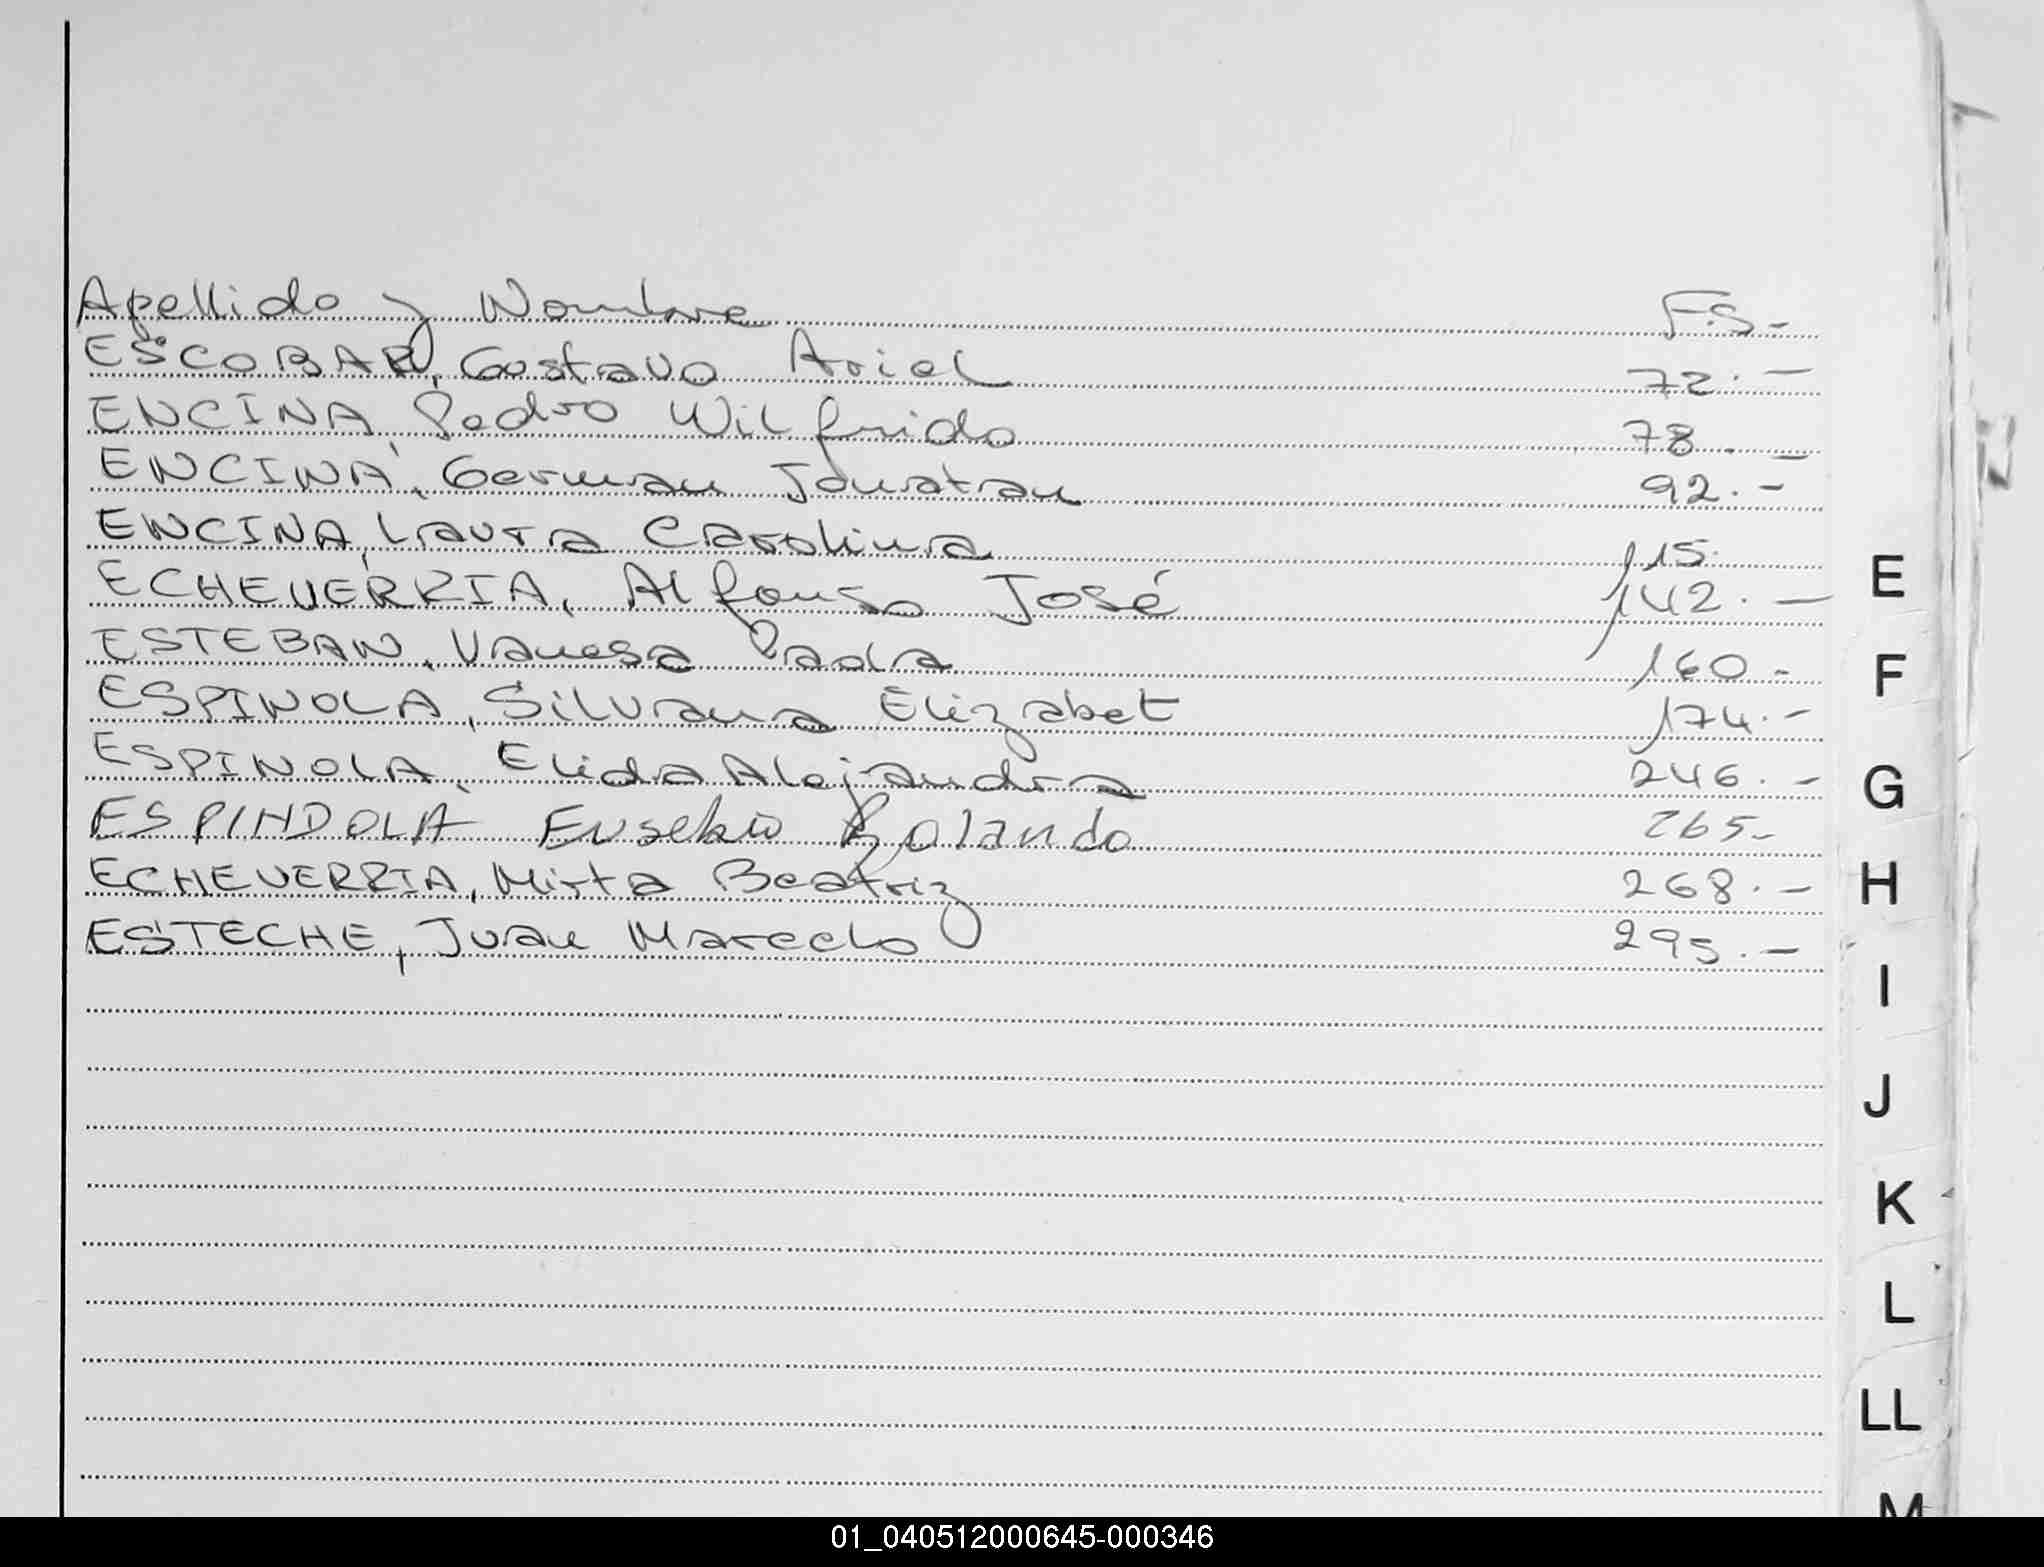 Apellido y Nombre F.S.-
ESCOBAR, Gustavo Ariel 72.-
ENCINA, Pedro Wilfrido 78.-
ENCINA, German Jonatan 92.-
ENCINA, Laura Carolina 115.
ECHEVERRIA, Alfonso José 142.-
ESTEBAN, Vanesa Paola 160.-
ESPINOLA, Silvana Elizabet 174.-
ESPINOLA, Elida Alejandra 246.-
ESPINDOLA Eusebio Rolando 265-
ECHEVERRIA, Mirta Beatriz 268.-
ESTECHE, Juan Marcelo 295.-
E
F
G
H
I
J
K
L
LL
M
01_040512000645-000346